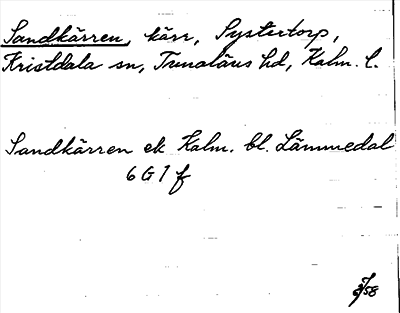 Sandkärren, kärr, Systertorp,
Kristdala sn, Tunaläns hd, Kalm. l.
Sandkärren ek Kalm. bl. Lämmedal
6 G 1 f
58